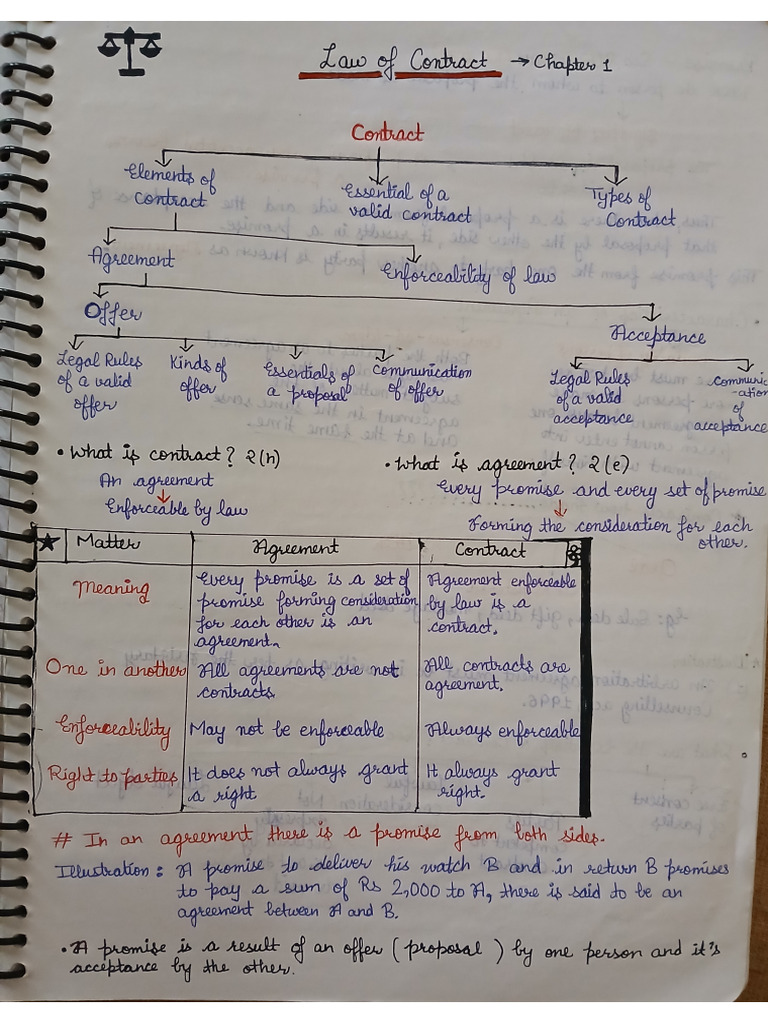 Law of Contract → Chapter 1
Contract
Elements of Contract
Essential of a valid contract
Types of Contract
Agreement
Enforceability of law
Offer
Acceptance
Legal Rules of a valid offer
Kinds of offer
Essentials of a proposal
Communication of offer
Legal Rules of a valid acceptance
communic-ation of acceptance
• What is contract? 2(h)
An agreement
Enforceable by law
• What is agreement? 2(e)
Every promise and every set of promise
Forming the consideration for each other.
Matter Agreement Contract
Meaning
Every promise is a set of promise forming consideration for each other is an agreement.
Agreement enforceable by law is a contract.
One in another
All agreements are not contracts.
All contracts are agreement.
Enforceability May not be enforceable Always enforceable
Right to parties
It does not always grant a right
It always grant right.
# In an agreement there is a promise from both sides.
Illustration: A promise to deliver his watch B and in return B promises
to pay a sum of Rs 2,000 to A, there is said to be an
agreement between A and B.
• A promise is a result of an offer (proposal) by one person and it's
acceptance by the other.